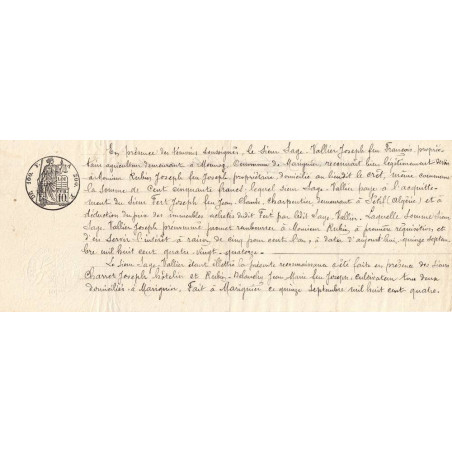 En présence des témoins soussignés, le Sieur Sage-Vallier Joseph feu François, proprié-
taire agriculteur demeurant à Commune de Marignier, reconnait bien légitimement devoir
à Monsieur Rubin Joseph feu Joseph, propriétaire domicilié au lieudit le Crêt, même commune
la somme de Cent cinquante francs, lequel sieur Sage-Vallier paye à l'acquitte-
ment du sieur Fort Joseph feu Jean-Claude, Charpentier, demeurant à Sétif (Algérie) et à
déduction du prix des immeubles achetés dudit Fort par ledit Sage-Vallier. Laquelle somme Sieur
Sage-Vallier Joseph prénommé promet rembourser à Monsieur Rubin, à première réquisition et
d'en servir l'intérêt à raison de cinq pour cent l'an, à date d'aujourd'hui, quinze septem-
bre mil huit cent quatre-vingt-quatorze.
Le sieur Sage Vallier étant illettré la présente reconnaissance a été faite en présence des sieurs
Charrot Joseph hôtelier et Rubin-Delanchy Jean Marie feu Joseph, cultivateur tous deux
domiciliés à Marignier. Fait à Marignier ce quinze septembre mil huit cent quatre-